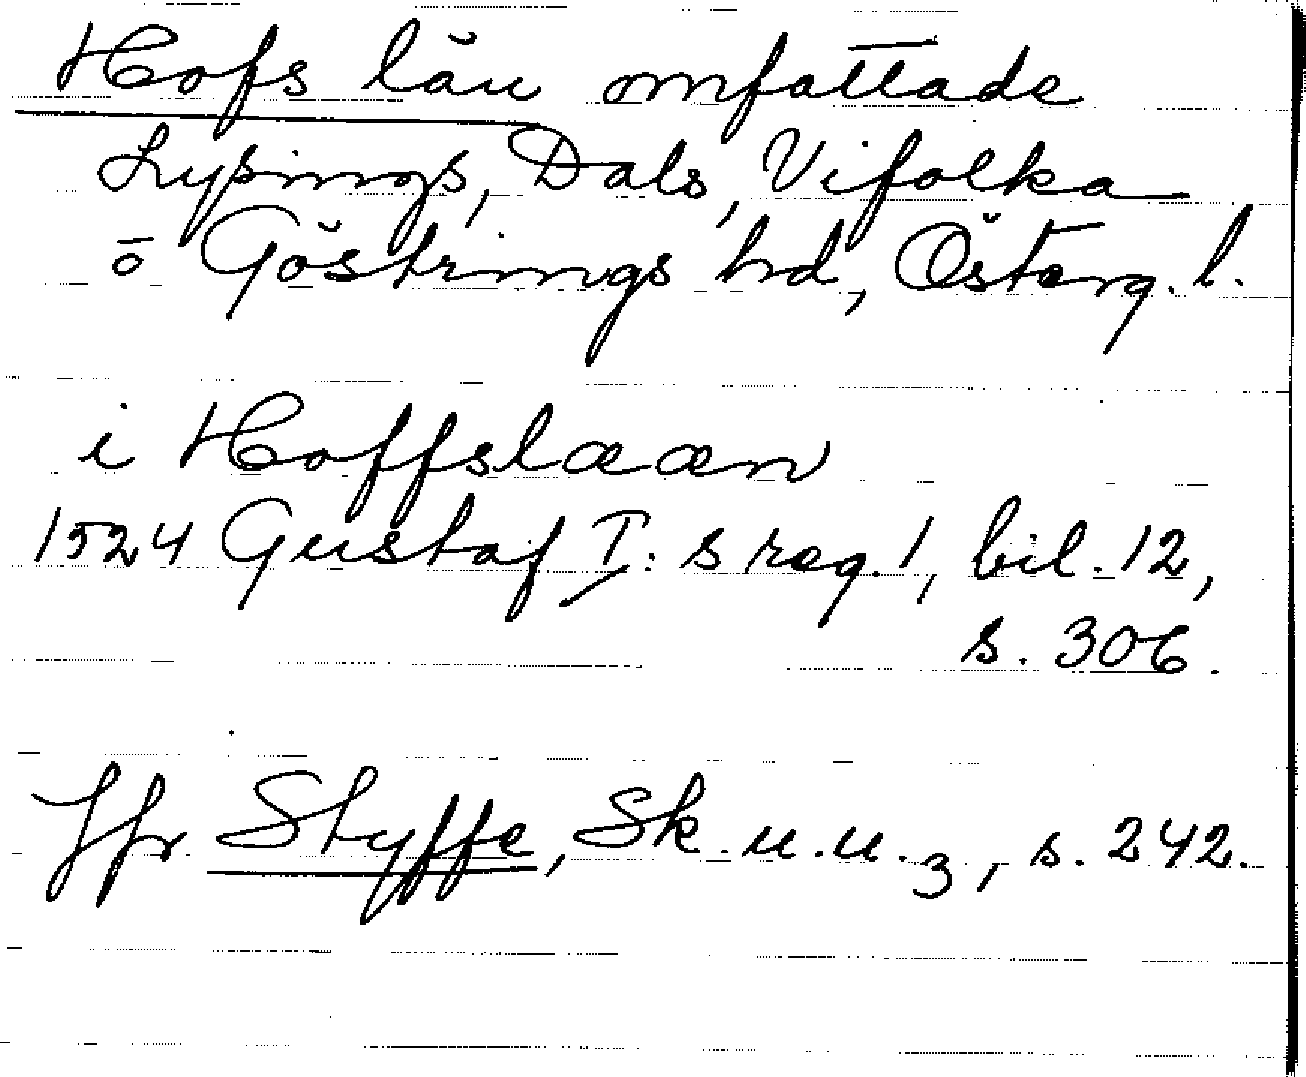 Hofs län omfattade
Lysings, Dals, Vifolka
o Göstrings hd, Österg. l.
i Hoffslææn
1524 Gustaf I:s reg. 1, bil. 12,
s. 306.
Jfr Styffe, Sk. u. u. 3, s. 242.